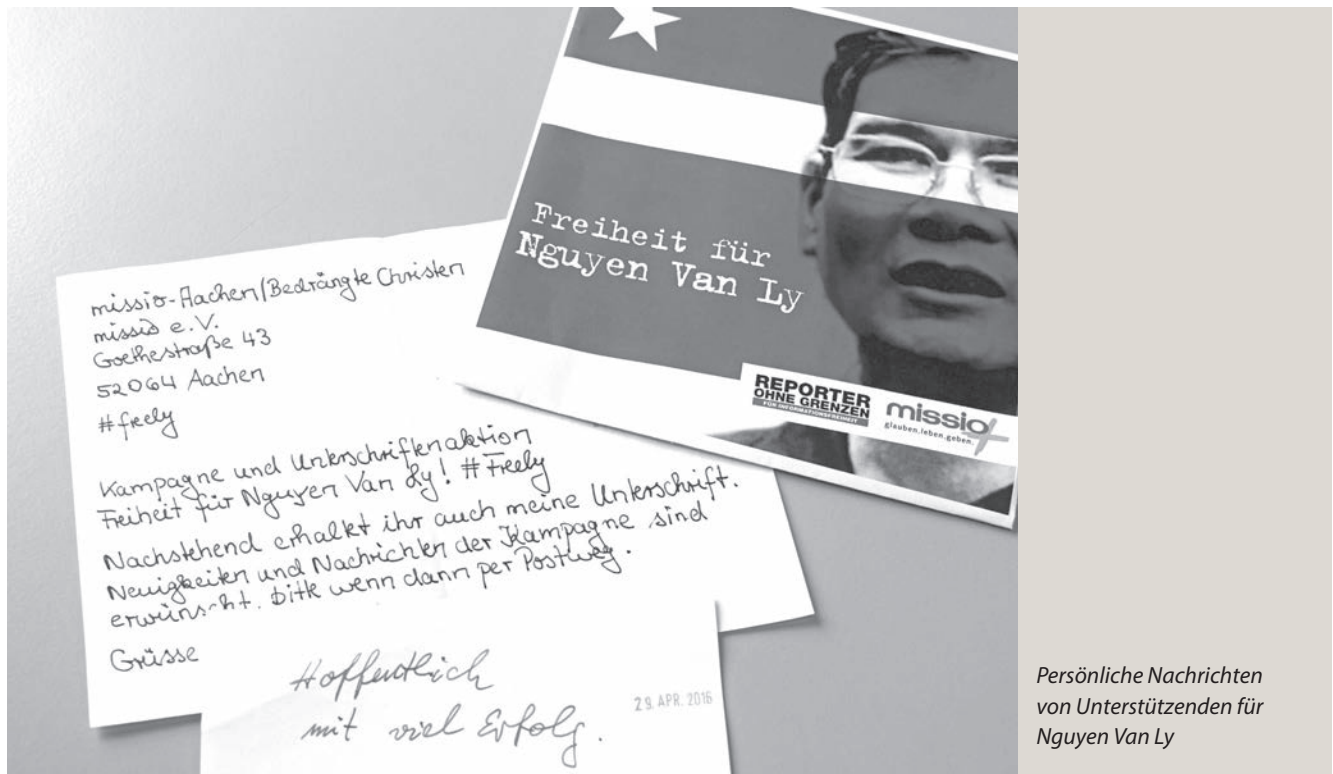 Freiheit für
Nguyen Van Ly
REPORTER
OHNE GRENZEN
FÜR INFORMATIONSFREIHEIT
missio
glauben.leben.geben.
missio-Aachen/Bedrängte Christen
missio e.V.
Goethestraße 43
52064 Aachen
#freely
Kampagne und Unterschriftenaktion
Freiheit für Nguyen Van Ly! #Freely
Nachstehend erhaltet ihr auch meine Unterschrift.
Neuigkeiten und Nachrichten der Kampagne sind
erwünscht. bitte wenn dann per Postweg.
Grüsse
Hoffentlich
mit viel Erfolg.
29. APR. 2016
Persönliche Nachrichten
von Unterstützenden für
Nguyen Van Ly